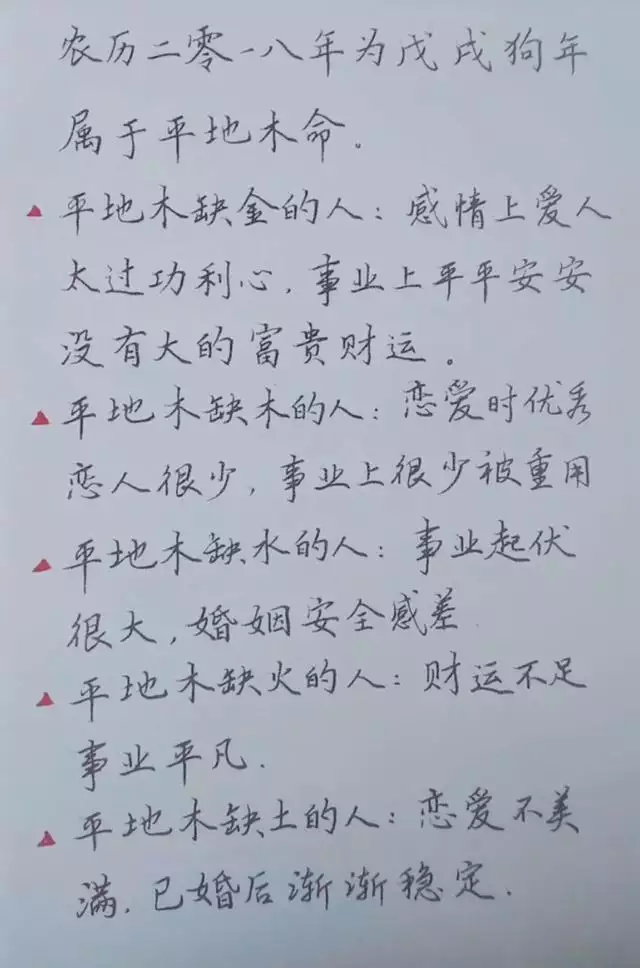 农历二零一八年为戊戌狗年
属于平地木命。
平地木缺金的人：感情上爱人
太过功利心，事业上平平安安
没有大的富贵财运。
平地木缺木的人：恋爱时优秀
恋人很少，事业上很少被重用
平地木缺水的人：事业起伏
很大，婚姻安全感差
平地木缺火的人：财运不足
事业平凡.
平地木缺土的人：恋爱不美
满，已婚后渐渐稳定.